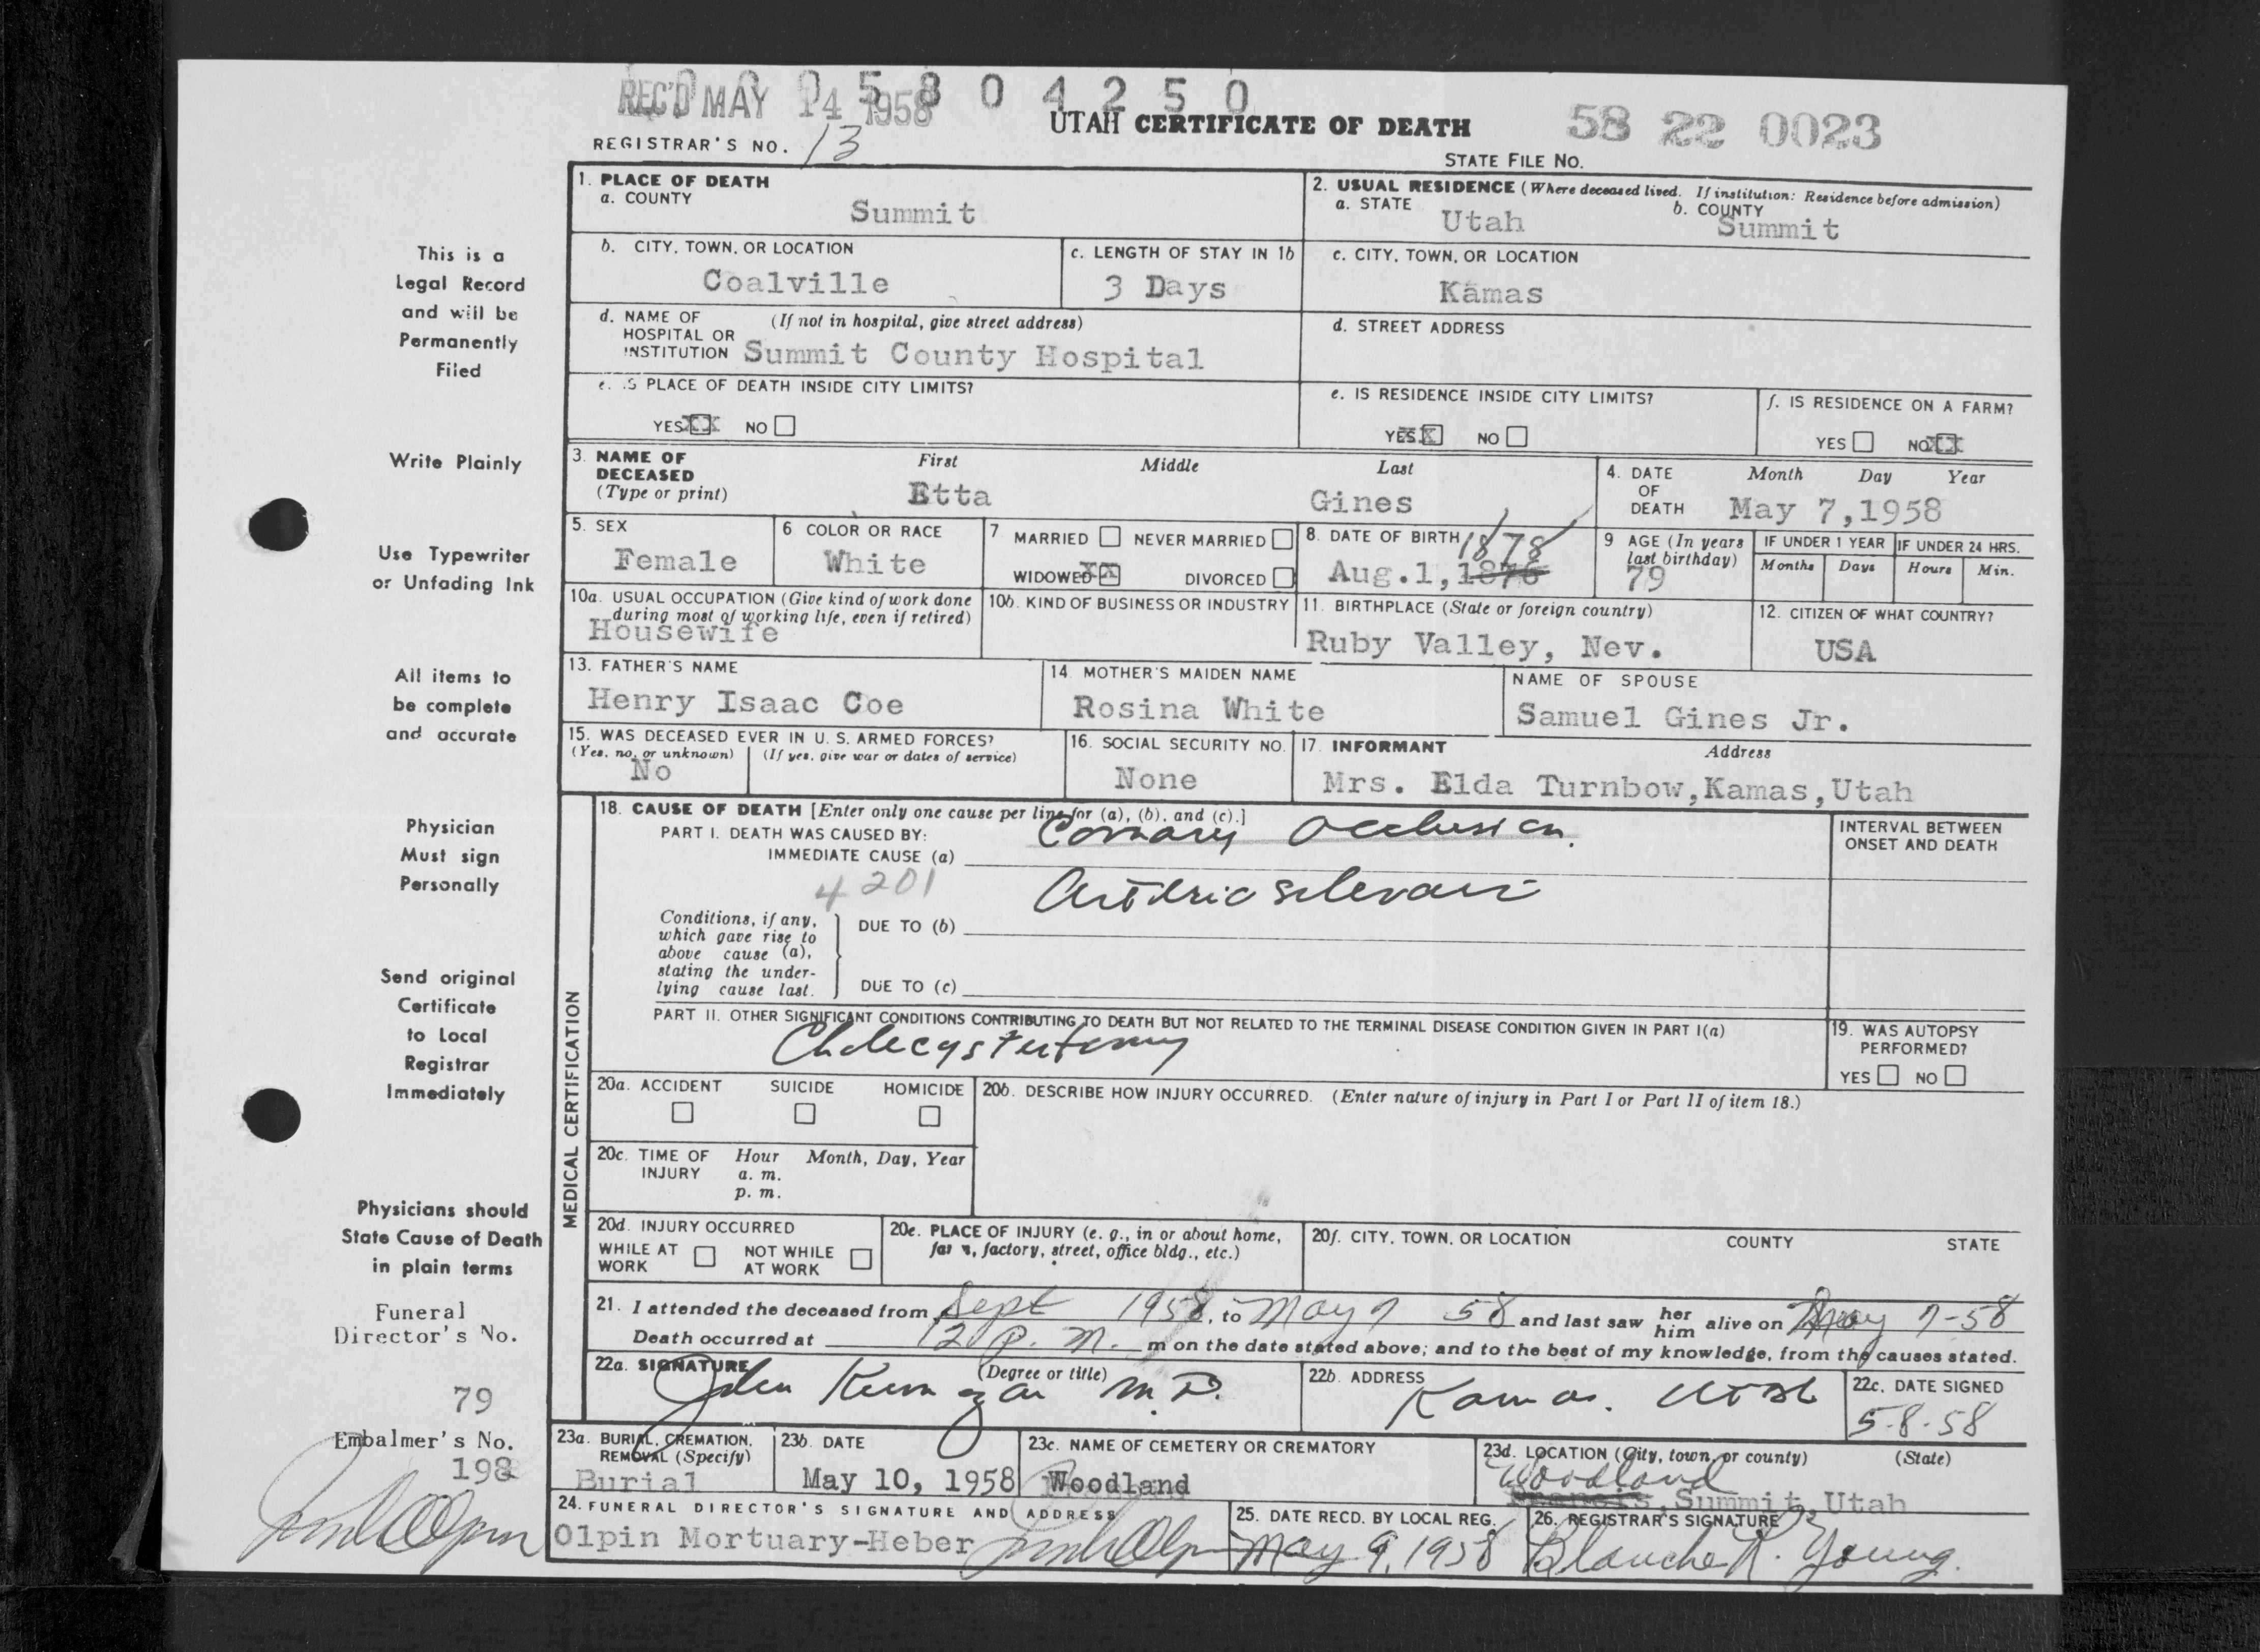 REC'D MAY 14 1958
0 0 0 5 8 0 4 2 5 0
UTAH CERTIFICATE OF DEATH
58 22 0023
REGISTRAR'S NO. 13
STATE FILE NO.
1. PLACE OF DEATH
a. COUNTY
Summit
2. USUAL RESIDENCE (Where deceased lived. If institution: Residence before admission)
a. STATE Utah b. COUNTY Summit
b. CITY, TOWN, OR LOCATION
Coalville
c. LENGTH OF STAY IN 1b
3 Days
c. CITY, TOWN, OR LOCATION
Kamas
d. NAME OF HOSPITAL OR INSTITUTION (If not in hospital, give street address)
Summit County Hospital
d. STREET ADDRESS
e. IS PLACE OF DEATH INSIDE CITY LIMITS?
YES XX NO
e. IS RESIDENCE INSIDE CITY LIMITS?
YES XX NO
f. IS RESIDENCE ON A FARM?
YES NO XX
3. NAME OF DECEASED (Type or print)
First Middle Last
Etta Gines
4. DATE OF DEATH Month Day Year
May 7,1958
5. SEX
Female
6 COLOR OR RACE
White
7 MARRIED NEVER MARRIED
WIDOWED XX DIVORCED
8. DATE OF BIRTH 1878
Aug.1,1876
9 AGE (In years last birthday)
79
IF UNDER 1 YEAR
Months Days
IF UNDER 24 HRS.
Hours Min.
10a. USUAL OCCUPATION (Give kind of work done during most of working life, even if retired)
Housewife
10b. KIND OF BUSINESS OR INDUSTRY
11. BIRTHPLACE (State or foreign country)
Ruby Valley, Nev.
12. CITIZEN OF WHAT COUNTRY?
USA
13. FATHER'S NAME
Henry Isaac Coe
14. MOTHER'S MAIDEN NAME
Rosina White
NAME OF SPOUSE
Samuel Gines Jr.
15. WAS DECEASED EVER IN U. S. ARMED FORCES?
(Yes, no, or unknown) (If yes, give war or dates of service)
No
16. SOCIAL SECURITY NO.
None
17. INFORMANT Address
Mrs. Elda Turnbow,Kamas,Utah
MEDICAL CERTIFICATION
18. CAUSE OF DEATH [Enter only one cause per line for (a), (b), and (c).]
PART I. DEATH WAS CAUSED BY:
IMMEDIATE CAUSE (a) Coronary Occlusion.
4201
Conditions, if any, which gave rise to above cause (a), stating the underlying cause last.
DUE TO (b)
DUE TO (c)
INTERVAL BETWEEN ONSET AND DEATH
PART II. OTHER SIGNIFICANT CONDITIONS CONTRIBUTING TO DEATH BUT NOT RELATED TO THE TERMINAL DISEASE CONDITION GIVEN IN PART I(a)
Cholecystectomy
19. WAS AUTOPSY PERFORMED?
YES NO
20a. ACCIDENT SUICIDE HOMICIDE
20b. DESCRIBE HOW INJURY OCCURRED. (Enter nature of injury in Part I or Part II of item 18.)
20c. TIME OF INJURY Hour Month, Day, Year
a. m.
p. m.
20d. INJURY OCCURRED
WHILE AT WORK NOT WHILE AT WORK
20e. PLACE OF INJURY (e. g., in or about home, farm, factory, street, office bldg., etc.)
20f. CITY, TOWN, OR LOCATION COUNTY STATE
21. I attended the deceased from Sept 1958, to May 7 58 and last saw her him alive on May 7-58
Death occurred at 12 p. m. m on the date stated above; and to the best of my knowledge, from the causes stated.
22a. SIGNATURE (Degree or title)
M.D.
22b. ADDRESS
Kamas. Utah
22c. DATE SIGNED
5-8-58
23a. BURIAL, CREMATION, REMOVAL (Specify)
Burial
23b. DATE
May 10, 1958
23c. NAME OF CEMETERY OR CREMATORY
Woodland
23d. LOCATION (City, town, or county) (State)
Woodland
Francis,Summit,Utah
24. FUNERAL DIRECTOR'S SIGNATURE AND ADDRESS
Olpin Mortuary-Heber
25. DATE RECD. BY LOCAL REG.
May 9, 1958
26. REGISTRAR'S SIGNATURE
Blanche R. Young.
This is a
Legal Record
and will be
Permanently
Filed
Write Plainly
Use Typewriter
or Unfading Ink
All items to
be complete
and accurate
Physician
Must sign
Personally
Send original
Certificate
to Local
Registrar
Immediately
Physicians should
State Cause of Death
in plain terms
Funeral
Director's No.
79
Embalmer's No.
198